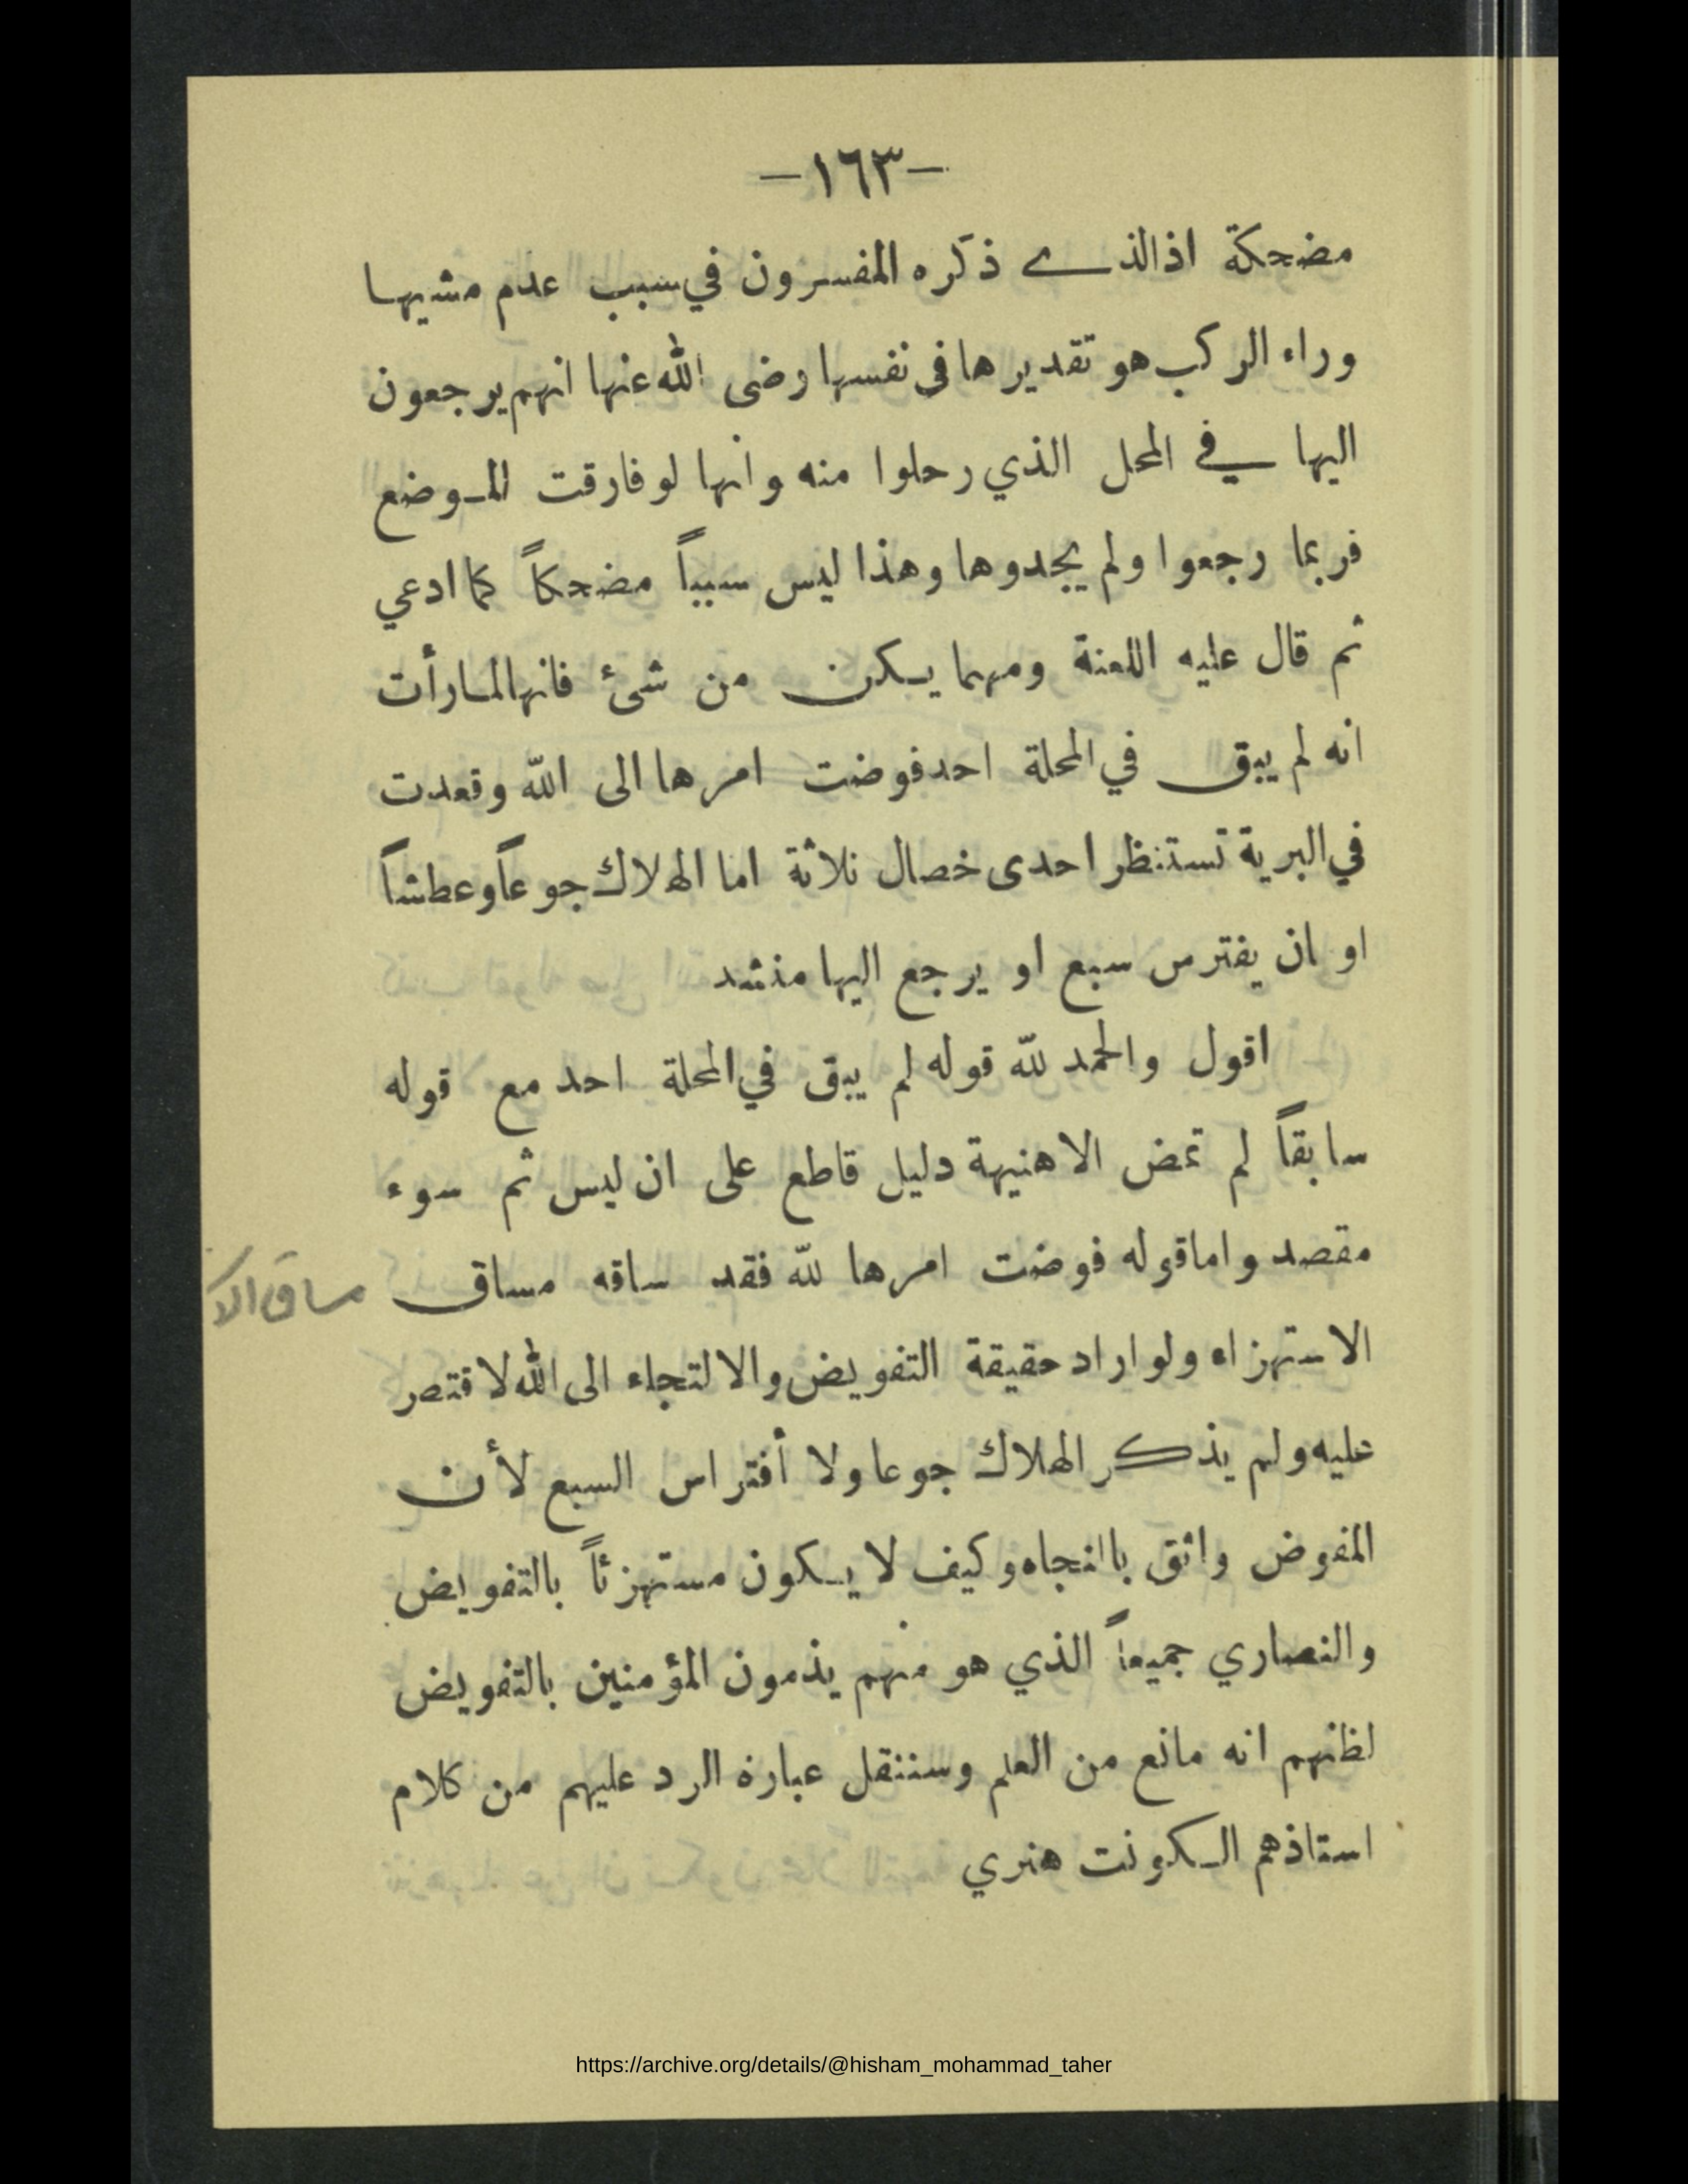 -١٦٣-
مضحكة اذالذي ذكره المفسرون في سبب عدم مشيها
وراء الركب هو تقديرها في نفسها رضى الله عنها انهم يرجعون
اليها في المحل الذي رحلوا منه وانها لو فارقت الموضع
فربما رجعوا ولم يجدوها وهذا ليس سبباً مضحكاً كما ادعي
ثم قال عليه اللعنة ومهما يكن من شئ فانها لما رأت
انه لم يبق في المحلة احد فوضت امرها الى الله وقعدت
في البرية تستنظر احدى خصال ثلاثة اما الهلاك جوعاً وعطشاً
او ان يفترس سبع او يرجع اليها منشد
اقول والحمد لله قوله لم يبق في المحلة احد مع قوله
سابقاً لم تمض الا هنيهة دليل قاطع على ان ليس ثم سوء
مقصد واما قوله فوضت امرها لله فقد ساقه مساق
مساق الا
الاستهزاء ولو اراد حقيقة التفويض والالتجاء الى الله لاقتصر
عليه ولم يذكر الهلاك جوعا ولا أفتراس السبع لأن
المفوض واثق بالنجاه وكيف لا يكون مستهزئاً بالتفويض
والنصاري جميعاً الذي هو منهم يذمون المؤمنين بالتفويض
لظنهم انه مانع من العلم وسننقل عبارة الرد عليهم من كلام
استاذهم الكونت هنري
https://archive.org/details/@hisham_mohammad_taher